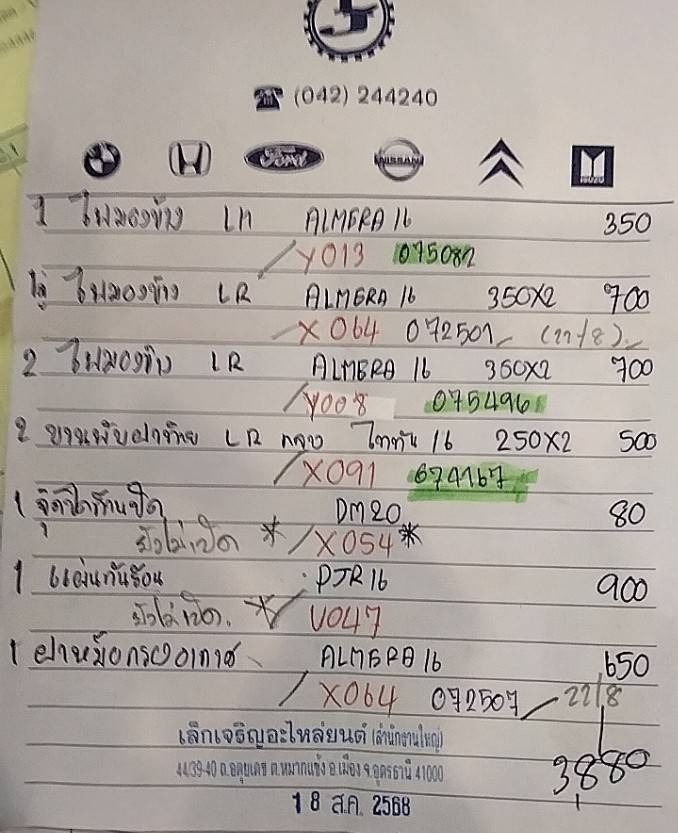 (042) 244240
Ford NISSAN ISUZU
1 ไฟมองข้าง LH ALMERA 16 350
/Y013 075082
ไฟมองข้าง LR ALMERA 16 350X2 700
X064 072501 (22/8)
2 ไฟมองข้าง LR ALMERA 16 350X2 700
/Y008 075496
2 บานพับฝาท้าย LR กลาง ไททัน 16 250X2 500
/X091 074167
1 DM20 80
ยังไม่เปิด * /X054 *
1 แผ่นกันร้อน PJR 16 900
ยังไม่เปิด. * / U047
1 ฝาหม้อกรองอากาศ ALMERA 16 650
/ X064 072507 / 22/8
เล็กเจริญอะไหล่ยนต์ (สำนักงานใหญ่)
44/39-40 ถ.อดุยเดช ต.หมากแข้ง อ.เมือง จ.อุดรธานี 41000
3880
18 ส.ค. 2568